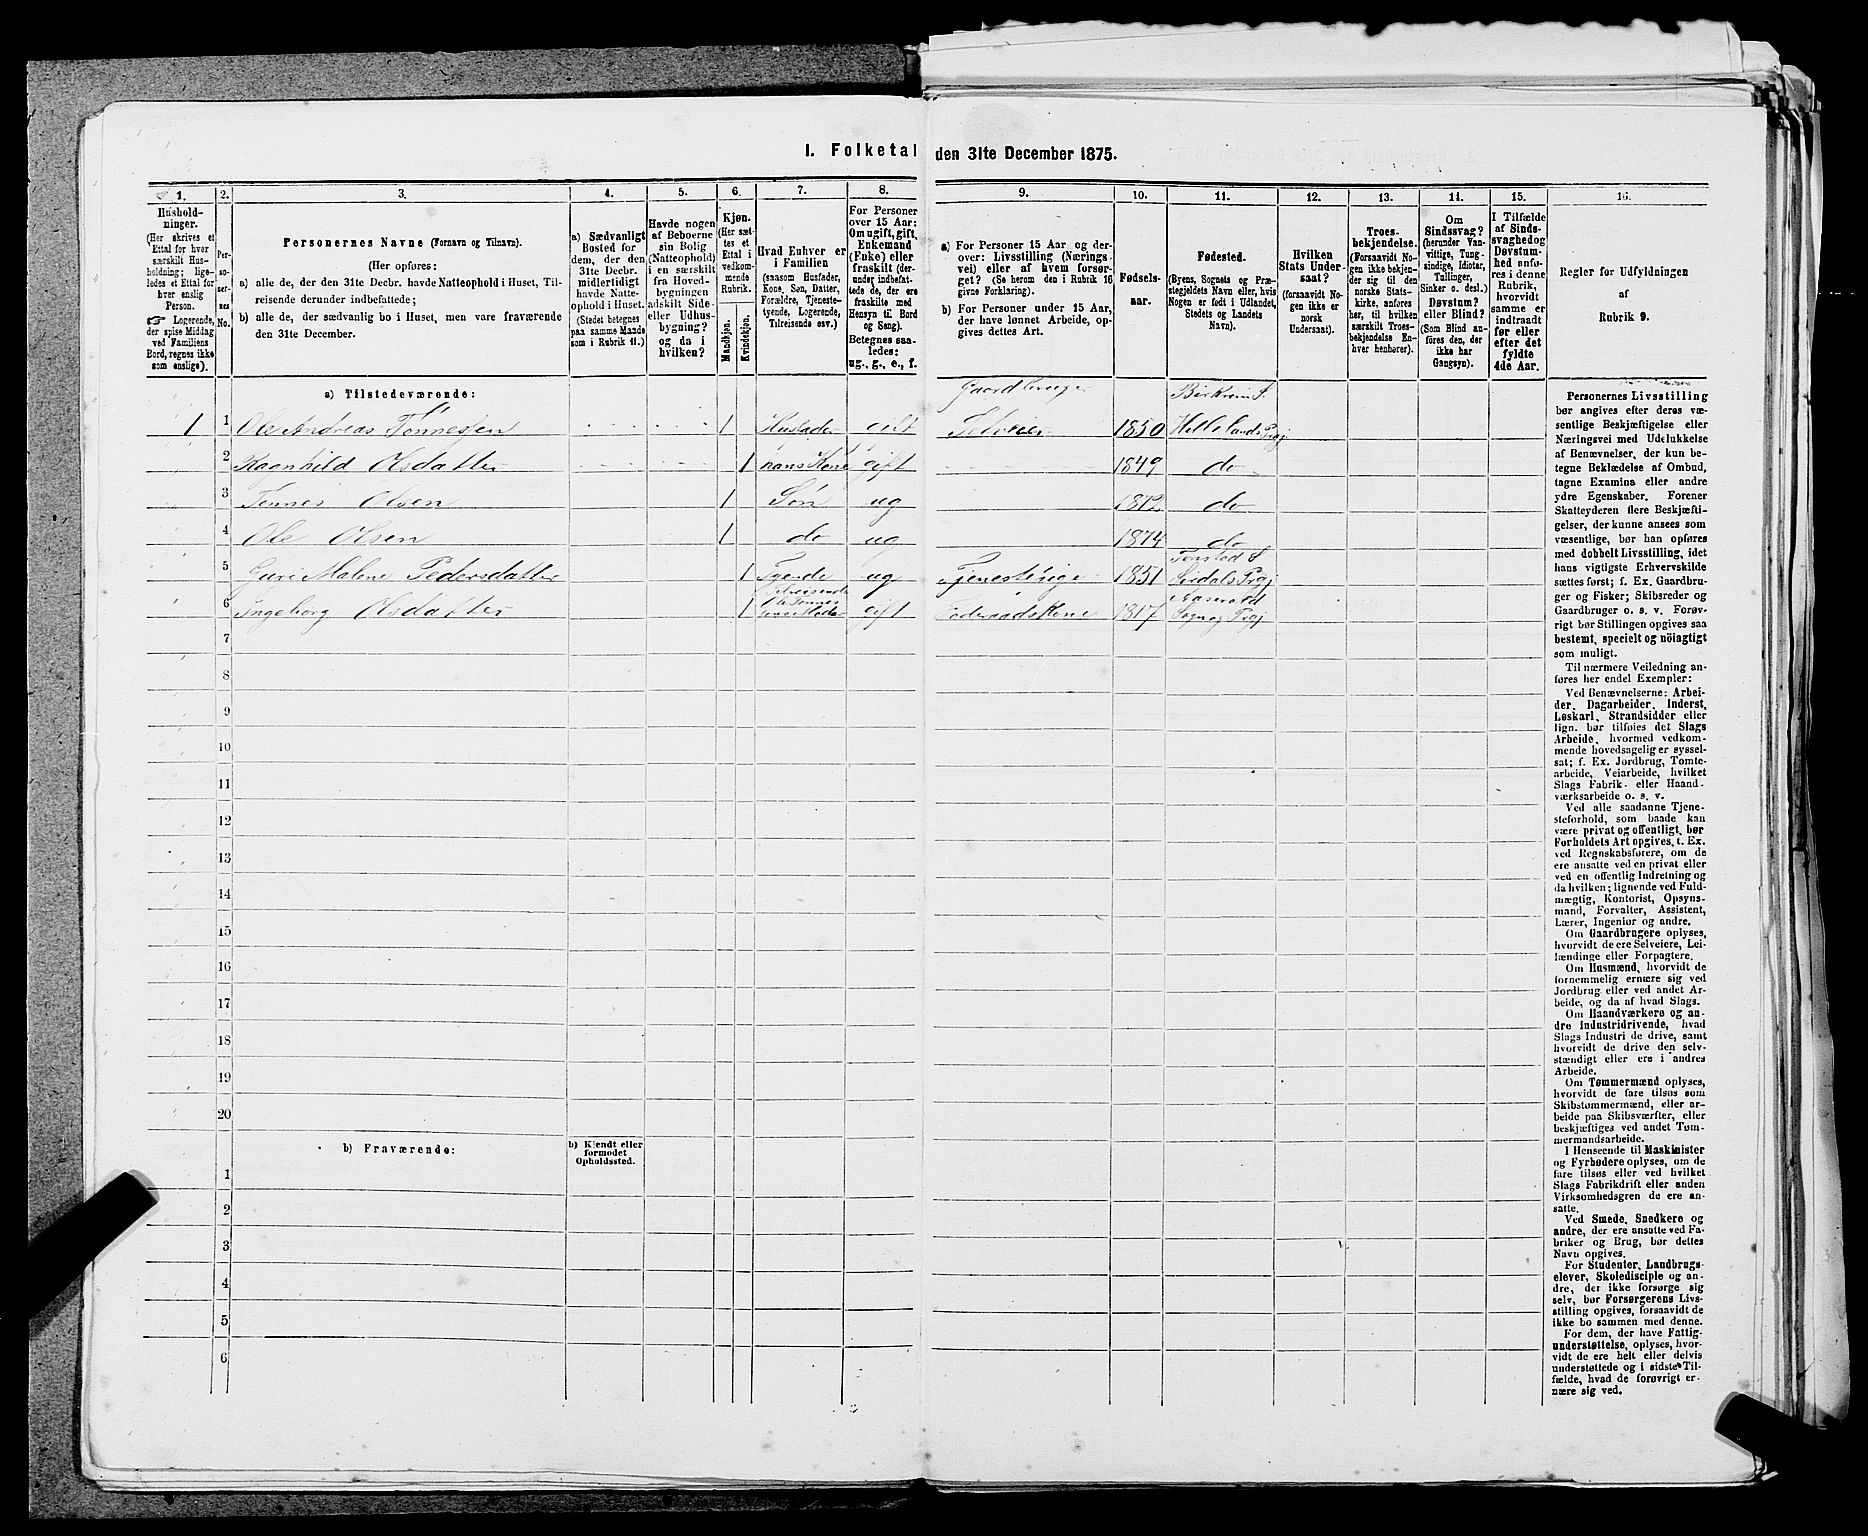 I. Folketal den 31te December 1875.
1. 2. 3. 4. 5. 6. 7. 8. 9. 10. 11. 12. 13. 14. 15. 16.
Hushold-
ninger.
(Her skrives et
Ettal for hver
særskilt Hus-
holdning; lige-
ledes et Ettal for
hver enslig
Person.
☞ Logerende,
der spise Middag
ved Familiens
Bord, regnes ikke
som enslige).
Per-
so-
ner-
nes
No.
Personernes Navne (Fornavn og Tilnavn).
(Her opføres:
a) alle de, der den 31te Decbr. havde Natteophold i Huset, Til-
reisende derunder indbefattede;
b) alle de, der sædvanlig bo i Huset, men vare fraværende
den 31te December.
a) Sædvanligt
Bosted for
dem, der den
31te Decbr.
midlertidigt
havde Natte-
ophold i Huset.
(Stedet betegnes
paa samme Maade
som i Rubrik 11.)
Havde nogen
af Beboerne
sin Bolig
(Natteophold)
i en særskilt
fra Hoved-
bygningen
adskilt Side-
eller Udhus-
bygning?
og da i
hvilken?
Kjøn.
(Her sæt-
tes et
Ettal i
vedkom-
mende
Rubrik.
Mandkjøn.
Kvindekjøn.
Hvad Enhver er
i Familien
(saasom Husfader,
Kone, Søn, Datter,
Forældre, Tjeneste-
tyende, Logerende,
Tilreisende osv.)
For Personer
over 15 Aar:
Om ugift, gift,
Enkemand
(Enke) eller
fraskilt (der-
under indbefat-
tede de, der ere
fraskilte med
Hensyn til Bord
og Seng).
Betegnes saa-
ledes:
ug., g., e., f.
a) For Personer 15 Aar og der-
over: Livsstilling (Nærings-
vei) eller af hvem forsør-
get? (Se herom den i Rubrik 16
givne Forklaring).
b) For Personer under 15 Aar,
der have lønnet Arbeide, op-
gives dettes Art.
Fødsels-
aar.
Fødested.
(Byens, Sognets og Præ-
stegjeldets Navn eller, hvis
Nogen er født i Udlandet,
Stedets og Landets
Navn).
Hvilken
Stats Under-
saat?
(forsaavidt No-
gen ikke er
norsk
Undersaat).
Troes-
bekjendelse.
(Forsaavidt No-
gen ikke bekjen-
der sig til den
norske Stats-
kirke, anføres
her, til hvilken
særskilt Troes-
bekjendelse En-
hver henhører).
Om
Sindssvag?
(herunder Van-
vittige, Tung-
sindige, Idioter,
Tullinger,
Sinker o. desl.)
Døvstum?
eller Blind?
(Som Blind an-
føres den, der
ikke har
Gangsyn).
I Tilfælde
af Sinds-
svaghed og
Døvstum-
hed anfø-
res i denne
Rubrik,
hvorvidt
samme er
indtraadt
før eller
efter det
fyldte
4de Aar.
Regler for Udfyldningen
af
Rubrik 9.
a) Tilstedeværende:
Gaardbruger Birkrem S.
1 1 Ole Andreas Tønnessen 1 Husfader gift Selveier 1850 Hellelands Prgj
2 Ragnhild Olsdatter 1 hans Kone gift 1849 do
3 Tønnes Olsen 1 Søn ug 1872 do
4 Ole Olsen 1 do ug 1874 do
Tonstad S
5 Guri Malene Pedersdatter 1 Tyende ug Tjenestepige 1851 Sirdals Prgj
Tilreisende
6 Ingeborg Olsdatter 1 Ole Tønnes sens Moder gift Føderaadskone 1817 Sogn og Prgj
7
8
9
10
11
12
13
14
15
16
17
18
19
20
b) Fraværende:
b) Kjendt eller
formodet
Opholdssted.
1
2
3
4
5
6
Personernes Livsstilling
bør angives efter deres væ-
sentlige Beskjæftigelse eller
Næringsvei med Udelukkelse
af Benævnelser, der kun be-
tegne Beklædelse af Ombud,
tagne Examina eller andre
ydre Egenskaber. Forener
Skatteyderen flere Beskjæfti-
gelser, der kunne ansees som
væsentlige, bør han opføres
med dobbelt Livsstilling, idet
hans vigtigste Erhvervskilde
sættes først; f. Ex. Gaardbru-
ger og Fisker; Skibsreder og
Gaardbruger o. s. v. Forøv-
rigt bør Stillingen opgives saa
bestemt, specielt og nøiagtigt
som muligt.
Til nærmere Veiledning an-
føres her endel Exempler:
Ved Benævnelserne: Arbei-
der, Dagarbeider, Inderst,
Løskarl, Strandsidder eller
lign. bør tilføies det Slags
Arbeide, hvormed vedkom-
mende hovedsagelig er syssel-
sat; f. Ex. Jordbrug, Tomte-
arbeide, Veiarbeide, hvilket
Slags Fabrik- eller Haand-
værksarbeide o. s. v.
Ved alle saadanne Tjene-
steforhold, som baade kan
være privat og offentligt, bør
Forholdets Art opgives, t. Ex.
ved Regnskabsførere, om de
ere ansatte ved en privat eller
ved en offentlig Indretning og
da hvilken; lignende ved Fuld-
mægtig, Kontorist, Opsyns-
mand, Forvalter, Assistent,
Lærer, Ingeniør og andre.
Om Gaardbrugere oplyses,
hvorvidt de ere Selveiere, Lei-
lændinge eller Forpagtere.
Om Husmænd, hvorvidt de
fornemmelig ernære sig ved
Jordbrug eller ved andet Ar-
beide, og da af hvad Slags.
Om Haandværkere og an-
dre industridrivende, hvad
Slags Industri de drive, samt
hvorvidt de drive den selv-
stændigt eller ere i andres
Arbeide.
Om Tømmermænd oplyses,
hvorvidt de fare tilsøs som
Skibstømmermænd, eller ar-
beide paa Skibsværfter, eller
beskjæftiges ved andet Tøm-
mermandsarbeide.
I Henseende til Maskinister
og Fyrbødere oplyses, om de
fare tilsøs eller ved hvilket
Slags Fabrikdrift eller anden
Virksomhedsgren de ere an-
satte.
Ved Smede, Snedkere og
andre, der ere ansatte ved Fa-
briker og Brug, bør dettes
Navn opgives.
For Studenter, Landbrugs-
elever, Skoledisciple og an-
dre, der ikke forsørge sig
selv, bør Forsørgerens Livs-
stilling opgives, forsaavidt de
ikke bo sammen med denne.
For dem, der have Fattig-
understøttelse, oplyses, hvor-
vidt de ere helt eller delvis
understøttede og i sidste Til-
fælde, hvad de forøvrigt er-
nære sig ved.